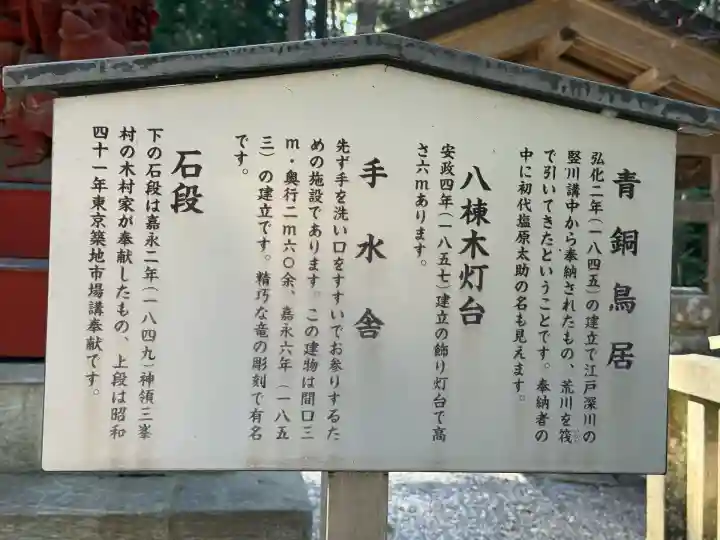 青銅鳥居
弘化二年(一八四五)の建立で江戸深川の
竪川講中から奉納されたもの、荒川を筏
で引いてきたということです。奉納者の
中に初代塩原太助の名も見えます。
八棟木灯台
安政四年(一八五七)建立の飾り灯台で高
さ六mあります。
手水舎
先ず手を洗い口をすすいでお参りするた
めの施設であります。この建物は間口三
m・奥行二m六〇余、嘉永六年(一八五
三)の建立です。精巧な竜の彫刻で有名
です。
石段
下の石段は嘉永二年(一八四九)神領三峯
村の木村家が奉献したもの、上段は昭和
四十一年東京築地市場講奉献です。